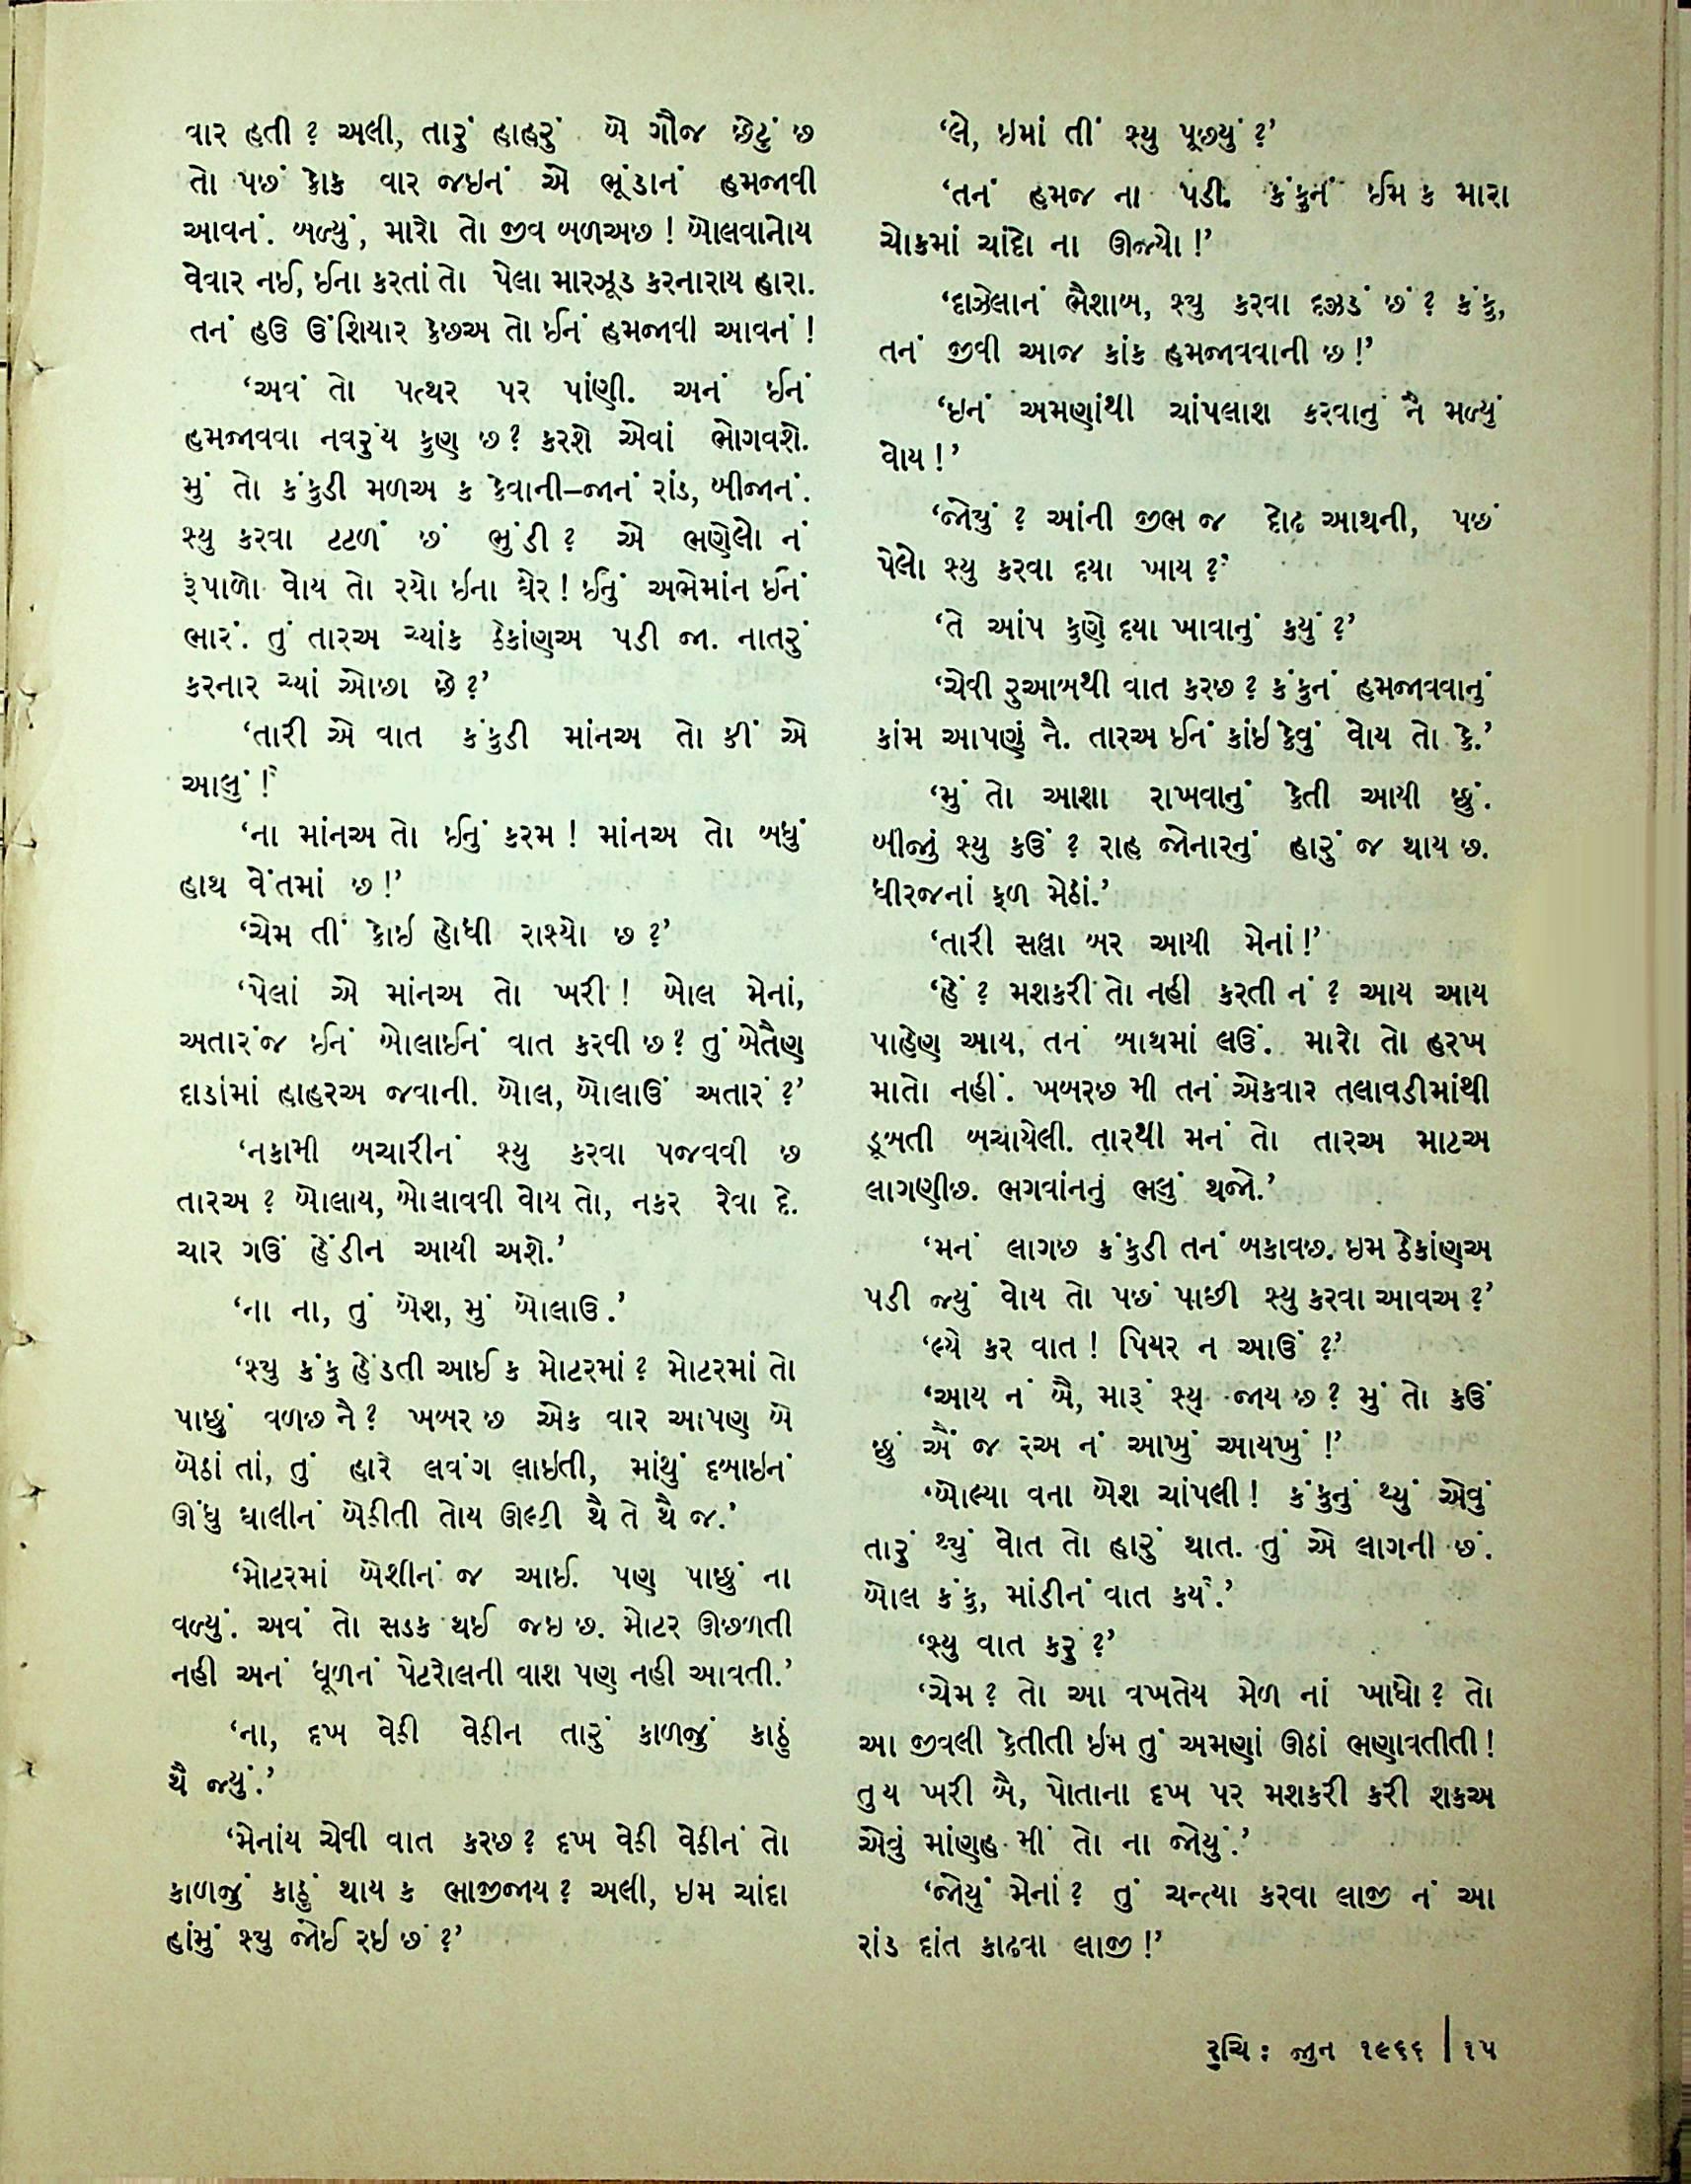 વાર હતી ? અલી, તારું હાહરું બે ગૌજ છેટું છ
તો પછં કોક વાર જઇનં એ ભૂંડાનં હમજાવી
આવનં. બળ્યું, મારો તો જીવ બળઅછ ! બોલવાનોય
વેવાર નઈ, ઈના કરતાં તો પેલા મારઝૂડ કરનારાય હારા.
તનં હઉ ઉંશિયાર કેછઅ તો ઈનં હમજાવી આવનં !
‘અવં તો પત્થર પર પાંણી. અનં ઈનં
હમજાવવા નવરુંય કુણ છ ? કરશે એવાં ભોગવશે.
મું તો કંકુડી મળઅ ક કેવાની–જાનં રાંડ, બીજાનં.
સ્યુ કરવા ટટળં છં ભુંડી ? એ ભણેલો નં
રૂપાળો વોય તો રયો ઈના ઘેર ! ઈનું અભેમાંન ઈનં
ભારં. તું તારઅ ચ્યાંક ઠેકાંણઅ પડી જા. નાતરું
કરનાર ચ્યાં ઓછા છે ?’
‘તારી એ વાત કંકુડી માંનઅ તો કીં એ
આલું !’
‘ના માંનઅ તો ઈનું કરમ ! માંનઅ તો બધું
હાથ વેંતમાં છ !’
‘ચેમ તીં કોઇ હોધી રાશ્યો છ ?’
‘પેલાં એ માંનઅ તો ખરી ! બોલ મેનાં,
અતારંજ ઈનં બોલાઈનં વાત કરવી છ ? તું બેતૈણ
દાડાંમાં હાહરઅ જવાની. બોલ, બોલાઉં અતારં ?’
‘નકામી બચારીનં સ્યુ કરવા પજવવી છ
તારઅ ? બોલાય, બોલાવવી વોય તો, નકર રેવા દે.
ચાર ગઉં હેંડીન આયી અશે.’
‘ના ના, તું બેશ, મું બોલાઉ.’
‘સ્યુ કંકુ હેંડતી આઈ ક મોટરમાં ? મોટરમાં તો
પાછું વળછ નૈ ? ખબર છ એક વાર આપણ બે
બેઠાં તાં, તું હારે લવંગ લાઇતી, માંથું દબાઇનં
ઊંધુ ઘાલીનં બેઠીતી તોય ઊલ્ટી થૈ તે થૈ જ.’
‘મોટરમાં બેશીનં જ આઈ. પણ પાછું ના
વળ્યું. અવં તો સડક થઈ જઇ છ. મોટર ઊછળતી
નહી અનં ધૂળનં પેટરોલની વાશ પણ નહી આવતી.’
‘ના, દખ વેઠી વેઠીન તારું કાળજું કાઠું
થૈ જ્યું.’
‘મેનાંય ચેવી વાત કરછ ? દખ વેઠી વેઠીનં તો
કાળજું કાઠું થાય ક ભાજીજાય ? અલી, ઇમ ચાંદા
હાંમું સ્યુ જોઈ રઇ છં ?’
‘લે, ઇમાં તીં સ્યુ પૂછ્યું ?’
‘તનં હમજ ના પડી. કંકુનં ઈમ ક મારા
ચોકમાં ચાંદો ના ઊજ્યો !’
‘દાઝેલાનં ભૈશાબ, સ્યુ કરવા દઝડં છં ? કંકુ,
તનં જીવી આજ કાંક હમજાવવાની છ !’
‘ઇનં અમણાંથી ચાંપલાશ કરવાનું નૈ મળ્યું
વોય !’
‘જોયું ? આંની જીભ જ દોઢ આથની, પછં
પેલો સ્યુ કરવા દયા ખાય ?’
‘તે આંપ કુણે દયા ખાવાનું કયું ?’
‘ચેવી રુઆબથી વાત કરછ ? કંકુનં હમજાવવાનું
કાંમ આપણું નૈ. તારઅ ઈનં કાંઇ કેવું વોય તો કે.’
‘મું તો આશા રાખવાનું કેતી આયી છું.
બીજું સ્યુ કઉં ? રાહ જોનારનું હારું જ થાય છ.
ધીરજનાં ફળ મેઠાં.’
‘તારી સલ્લા બર આયી મેનાં !’
‘હેં ? મશકરી તો નહી કરતી નં ? આય આય
પાહેણ આય, તનં બાથમાં લઉં. મારો તો હરખ
માતો નહીં. ખબરછ મી તનં એકવાર તલાવડીમાંથી
ડૂબતી બચાયેલી. તારથી મનં તો તારઅ માટઅ
લાગણીછ. ભગવાંનનું ભલું થજો.’
‘મનં લાગછ કંકુડી તનં બકાવછ. ઇમ ઠેકાંણઅ
પડી જ્યું વોય તો પછં પાછી સ્યુ કરવા આવઅ ?’
‘લ્યે કર વાત ! પિયર ન આઉં ?’
‘આય નં બૈ, મારૂં સ્યુ જાય છ ? મું તો કઉં
છું ઐં જ રઅ નં આખું આયખું !’
‘બોલ્યા વના બેશ ચાંપલી ! કંકુનું થ્યું એવું
તારું થ્યું વોત તો હારું થાત. તું એ લાગની છં.
બોલ કંકુ, માંડીનં વાત કર્યં.’
‘સ્યુ વાત કરું ?’
‘ચેમ ? તો આ વખતેય મેળ નાં ખાધો ? તો
આ જીવલી કેતીતી ઈમ તું અમણાં ઊઠાં ભણાવતીતી !
તુય ખરી બૈ, પોતાના દખ પર મશકરી કરી શકઅ
એવું માંણહ મીં તો ના જોયું.’
‘જોયું મેનાં ? તું ચન્ત્યા કરવા લાજી નં આ
રાંડ દાંત કાઢવા લાજી !’
રુચિ : જુન ૧૯૬૬ | ૧૫